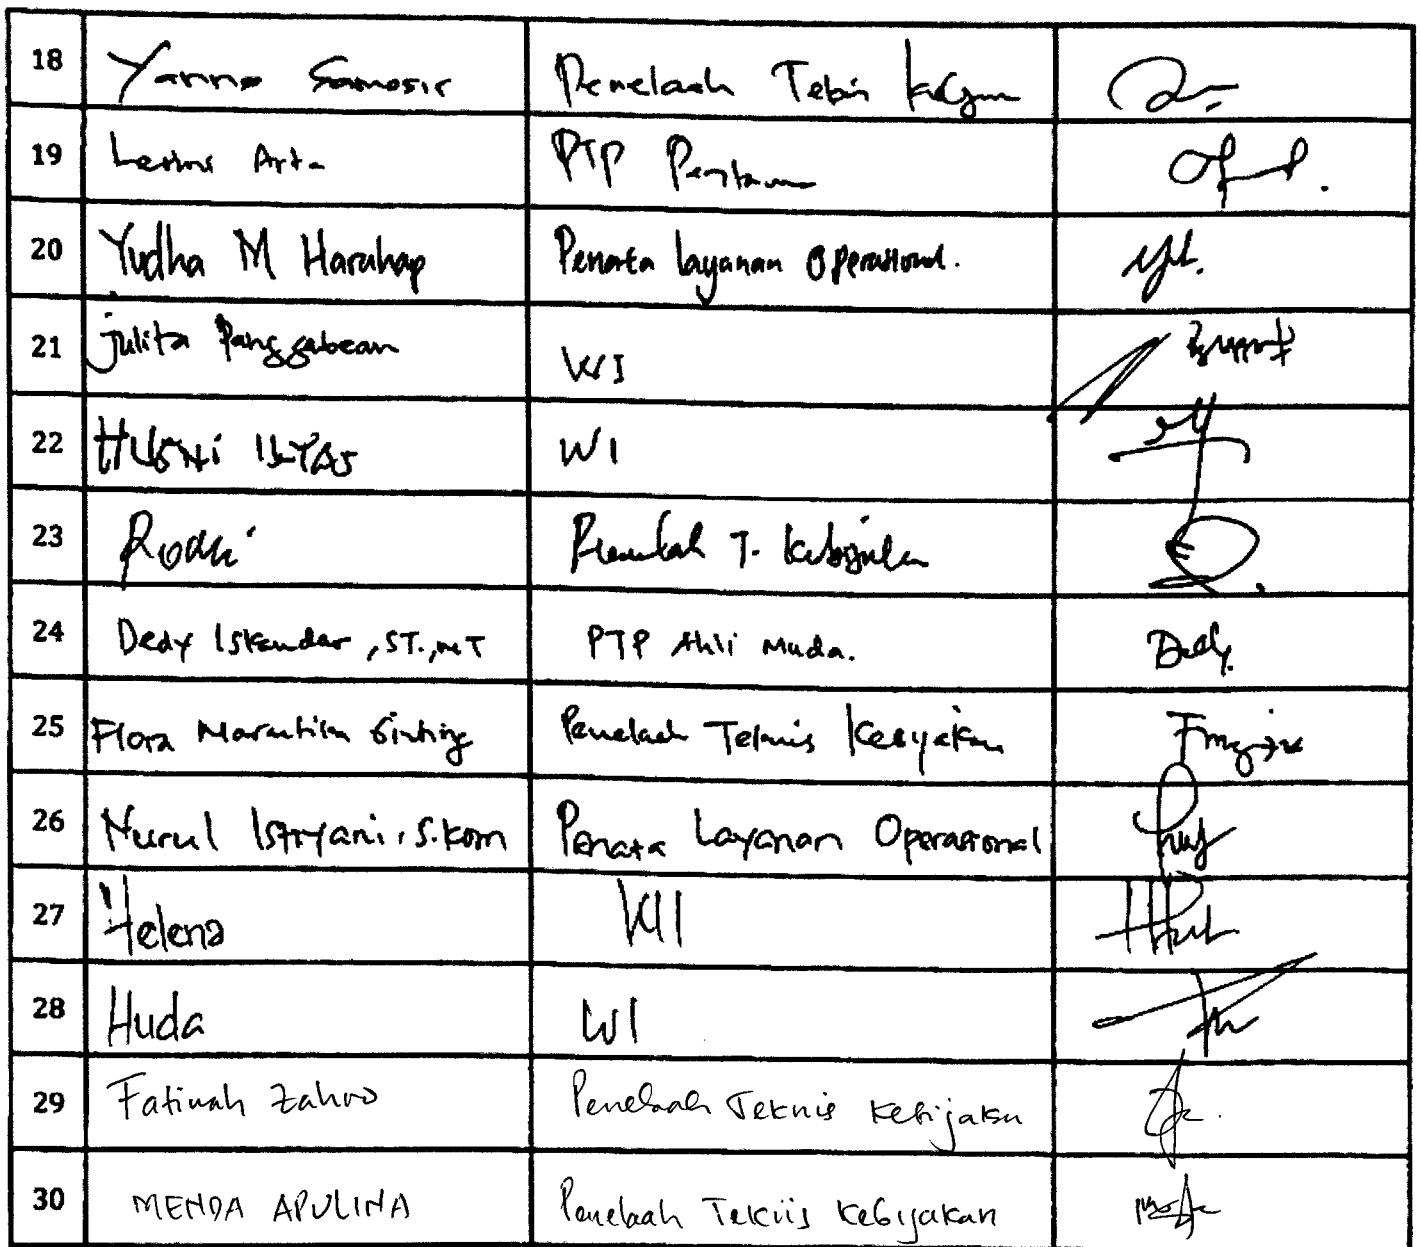 18 Yanno Samosir Penelaah Tebis
19 Arta PTP Pertama
20 Yudha M Harahap Penata Layanan Operasional.
21 Julita Panggabean WI
22 Husni Ilyas WI
23 Rodhi T. Kebijakan
24 Dedy Iskandar, ST., MT PTP Ahli Muda. Dedy.
25 Flora Ginting Penelaah Teknis Kebijakan
26 Nurul Istryani, S.Kom Penata Layanan Operasional
27 Helena WI
28 Huda WI
29 Fatimah Zahro Penelaah Teknis Kebijakan
30 MENDA APULINA Penelaah Teknis Kebijakan